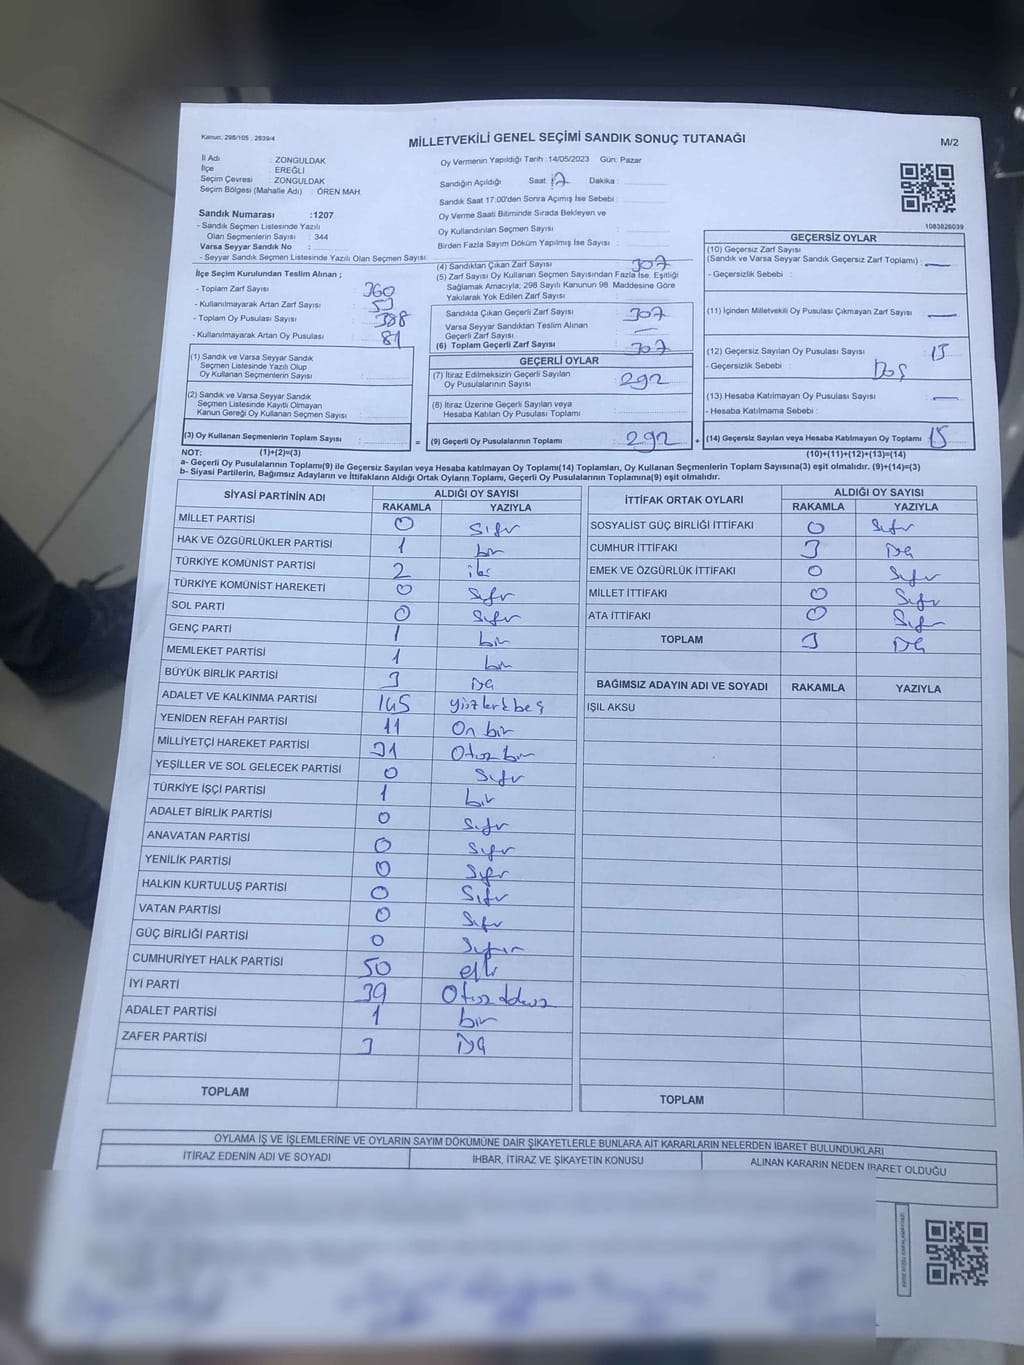 Kanun; 298/105 , 2839/4
MİLLETVEKİLİ GENEL SEÇİMİ SANDIK SONUÇ TUTANAĞI
M/2
İl Adı : ZONGULDAK
İlçe : EREĞLİ
Seçim Çevresi : ZONGULDAK
Seçim Bölgesi (Mahalle Adı) : ÖREN MAH.
Oy Vermenin Yapıldığı Tarih :14/05/2023 Gün: Pazar
Sandığın Açıldığı Saat: 17 Dakika :
Sandık Saat 17:00'den Sonra Açımış İse Sebebi :
Oy Verme Saati Bitiminde Sırada Bekleyen ve
Oy Kullandırılan Seçmen Sayısı :
Birden Fazla Sayım Döküm Yapılmış İse Sayısı :
1083826039
Sandık Numarası :1207
- Sandık Seçmen Listesinde Yazılı
Olan Seçmenlerin Sayısı : 344
Varsa Seyyar Sandık No :
- Seyyar Sandık Seçmen Listesinde Yazılı Olan Seçmen Sayısı:
İlçe Seçim Kurulundan Teslim Alınan ;
- Toplam Zarf Sayısı : 360
- Kullanılmayarak Artan Zarf Sayısı : 53
- Toplam Oy Pusulası Sayısı : 388
- Kullanılmayarak Artan Oy Pusulası : 81
(1) Sandık ve Varsa Seyyar Sandık
Seçmen Listesinde Yazılı Olup
Oy Kullanan Seçmenlerin Sayısı :
(2) Sandık ve Varsa Seyyar Sandık
Seçmen Listesinde Kayıtlı Olmayan
Kanun Gereği Oy Kullanan Seçmen Sayısı :
(3) Oy Kullanan Seçmenlerin Toplam Sayısı :
(4) Sandıktan Çıkan Zarf Sayısı : 307
(5) Zarf Sayısı Oy Kullanan Seçmen Sayısından Fazla İse, Eşitliği
Sağlamak Amacıyla; 298 Sayılı Kanunun 98. Maddesine Göre
Yakılarak Yok Edilen Zarf Sayısı :
Sandıkta Çıkan Geçerli Zarf Sayısı : 307
Varsa Seyyar Sandıktan Teslim Alınan
Geçerli Zarf Sayısı : —
(6) Toplam Geçerli Zarf Sayısı : 307
GEÇERLİ OYLAR
(7) İtiraz Edilmeksizin Geçerli Sayılan
Oy Pusulalarının Sayısı : 292
(8) İtiraz Üzerine Geçerli Sayılan veya
Hesaba Katılan Oy Pusulası Toplamı :
= (9) Geçerli Oy Pusulalarının Toplamı : 292
GEÇERSİZ OYLAR
(10) Geçersiz Zarf Sayısı
(Sandık ve Varsa Seyyar Sandık Geçersiz Zarf Toplamı) : —
- Geçersizlik Sebebi :
(11) İçinden Milletvekili Oy Pusulası Çıkmayan Zarf Sayısı : —
(12) Geçersiz Sayılan Oy Pusulası Sayısı : 15
- Geçersizlik Sebebi : Boş
(13) Hesaba Katılmayan Oy Pusulası Sayısı : —
- Hesaba Katılmama Sebebi :
+ (14) Geçersiz Sayılan veya Hesaba Katılmayan Oy Toplamı : 15
NOT: (1)+(2)=(3)
(10)+(11)+(12)+(13)=(14)
a- Geçerli Oy Pusulalarının Toplamı(9) ile Geçersiz Sayılan veya Hesaba katılmayan Oy Toplamı(14) Toplamları, Oy Kullanan Seçmenlerin Toplam Sayısına(3) eşit olmalıdır. (9)+(14)=(3)
b- Siyasi Partilerin, Bağımsız Adayların ve İttifakların Aldığı Ortak Oyların Toplamı, Geçerli Oy Pusulalarının Toplamına(9) eşit olmalıdır.
SİYASİ PARTİNİN ADI ALDIĞI OY SAYISI
RAKAMLA YAZIYLA
MİLLET PARTİSİ 0 Sıfır
HAK VE ÖZGÜRLÜKLER PARTİSİ 1 bir
TÜRKİYE KOMÜNİST PARTİSİ 2 iki
TÜRKİYE KOMÜNİST HAREKETİ 0 Sıfır
SOL PARTİ 0 Sıfır
GENÇ PARTİ 1 bir
MEMLEKET PARTİSİ 1 bir
BÜYÜK BİRLİK PARTİSİ 3 üç
ADALET VE KALKINMA PARTİSİ 145 yüzkırkbeş
YENİDEN REFAH PARTİSİ 11 On bir
MİLLİYETÇİ HAREKET PARTİSİ 31 Otuz bir
YEŞİLLER VE SOL GELECEK PARTİSİ 0 Sıfır
TÜRKİYE İŞÇİ PARTİSİ 1 bir
ADALET BİRLİK PARTİSİ 0 Sıfır
ANAVATAN PARTİSİ 0 Sıfır
YENİLİK PARTİSİ 0 Sıfır
HALKIN KURTULUŞ PARTİSİ 0 Sıfır
VATAN PARTİSİ 0 Sıfır
GÜÇ BİRLİĞİ PARTİSİ 0 Sıfır
CUMHURİYET HALK PARTİSİ 50 elli
İYİ PARTİ 39 Otuz dokuz
ADALET PARTİSİ 1 bir
ZAFER PARTİSİ 3 üç
TOPLAM
İTTİFAK ORTAK OYLARI ALDIĞI OY SAYISI
RAKAMLA YAZIYLA
SOSYALİST GÜÇ BİRLİĞİ İTTİFAKI 0 Sıfır
CUMHUR İTTİFAKI 3 üç
EMEK VE ÖZGÜRLÜK İTTİFAKI 0 Sıfır
MİLLET İTTİFAKI 0 Sıfır
ATA İTTİFAKI 0 Sıfır
TOPLAM 3 üç
BAĞIMSIZ ADAYIN ADI VE SOYADI RAKAMLA YAZIYLA
IŞIL AKSU
TOPLAM
OYLAMA İŞ VE İŞLEMLERİNE VE OYLARIN SAYIM DÖKÜMÜNE DAİR ŞİKAYETLERLE BUNLARA AİT KARARLARIN NELERDEN İBARET BULUNDUKLARI
İTİRAZ EDENİN ADI VE SOYADI İHBAR, İTİRAZ VE ŞİKAYETİN KONUSU ALINAN KARARIN NEDEN İBARET OLDUĞU